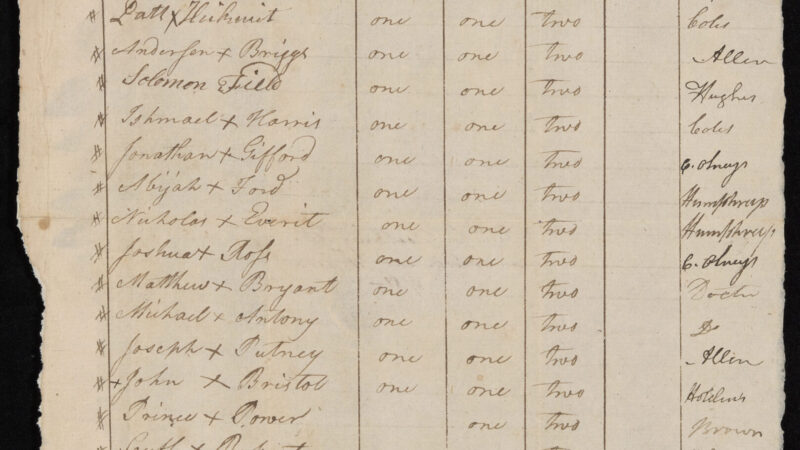 # Patt x one one two Coles
# Anderson x Briggs one one two Allen
# Solomon Field one one two Hughes
# Ishmael x Harris one one two Coles
# Jonathan x Gifford one one two C. Olneys
# Abijah x Ford one one two Humphreys
# Nicholas x Everit one one two Humphreys
# Joshua x Ross one one two C. Olneys
# Matthew x Bryant one one two
# Michael x Antony one one two Do
# Joseph x Putney one one two Allen
# x John x Bristol one one two Holdens
# Prince x Power one two Brown